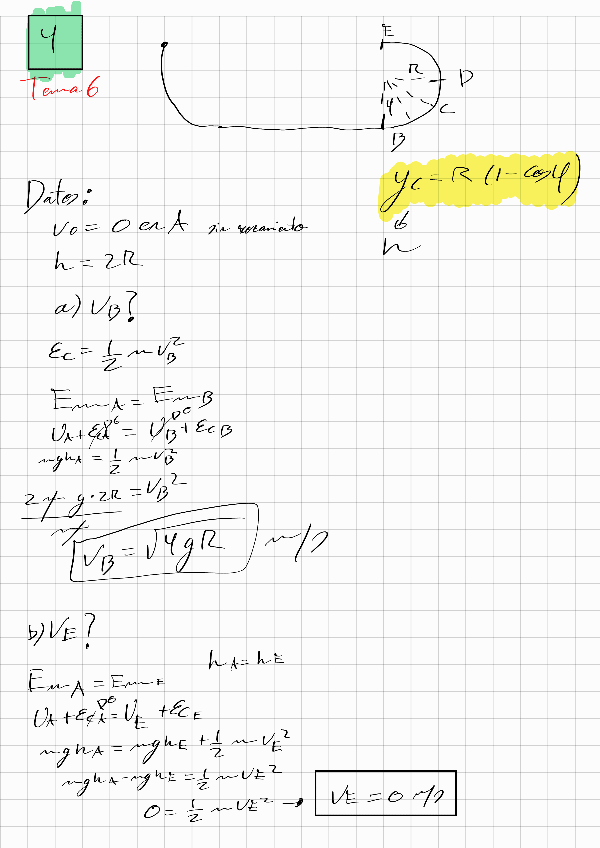 4
Tema 6
E
R
D
φ
C
B
y_C = R (1 - cosφ)
h
Datos:
V₀ = 0 en A sin rozamiento
h = 2R
a) V_B?
Ec = 1/2 m V_B²
Em_A = Em_B
U_A + Ec_A = U_B + Ec_B
mgh_A = 1/2 m V_B²
2 m g · 2R / m = V_B²
V_B = √4gR m/s
b) V_E?
h_A = h_E
Em_A = Em_E
U_A + Ec_A = U_E + Ec_E
mgh_A = mgh_E + 1/2 m V_E²
mgh_A - mgh_E = 1/2 m V_E²
0 = 1/2 m V_E² → V_E = 0 m/s